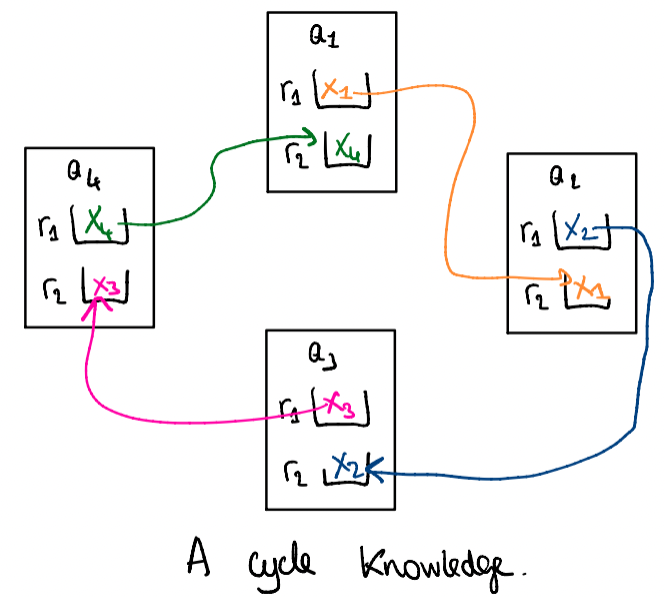 Q1
r1 X1
r2 X4
Q4
r1 X4
r2 X3
Q2
r1 X2
r2 X1
Q3
r1 X3
r2 X2
A cycle knowledge.